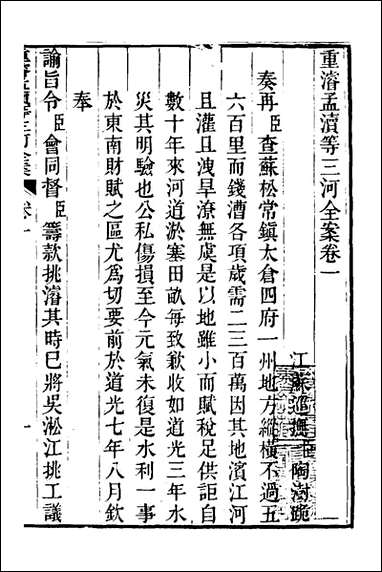 重濬孟瀆等三河全案卷一
江蘇巡撫臣陶澍跪
奏再臣查蘇松常鎭太倉四府一州地方縱橫不過五
六百里而錢漕各項歲需二三百萬因其地濱江河
且灌且洩旱潦無虞是以地雖小而賦稅足供詎自
數十年來河道淤塞田畝每致歉收如道光三年水
災其明驗也公私傷損至今元氣未復是水利一事
於東南財賦之區尤爲切要前於道光七年八月欽
奉
諭旨令臣會同督臣籌款挑濬其時已將吳淞江挑工議
卷一
一